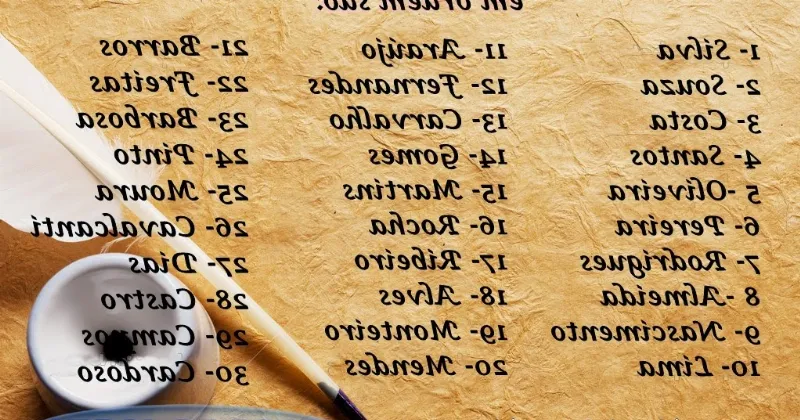 em ordem são:
1- Silva
2- Souza
3- Costa
4- Santos
5 -Oliveira
6- Pereira
7- Rodrigues
8 -Almeida
9- Nascimento
10- Lima
11- Araújo
12- Fernandes
13- Carvalho
14- Gomes
15- Martins
16- Rocha
17- Ribeiro
18- Alves
19- Monteiro
20- Mendes
21- Barros
22- Freitas
23- Barbosa
24- Pinto
25- Moura
26- Cavalcanti
27- Dias
28- Castro
29- Campos
30- Cardoso